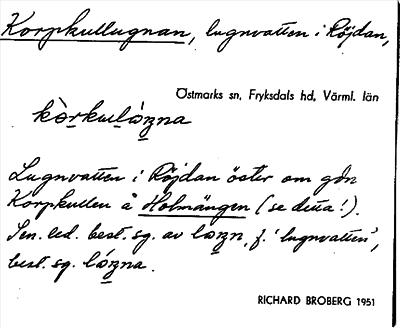 Korpkullugnan, lugnvatten i Röjdan,
Östmarks sn, Fryksdals hd, Värml. län
kòrkulàzna
Lugnvatten i Röjdan öster om gdn
Korpkullen å Holmängen (se detta!).
Sen. led. best. sg. av lazn, f. 'lugnvatten',
best. sg. lázna.
RICHARD BROBERG 1951